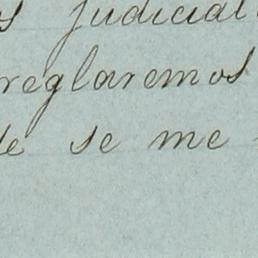 s judicial
reglaremos
de se me